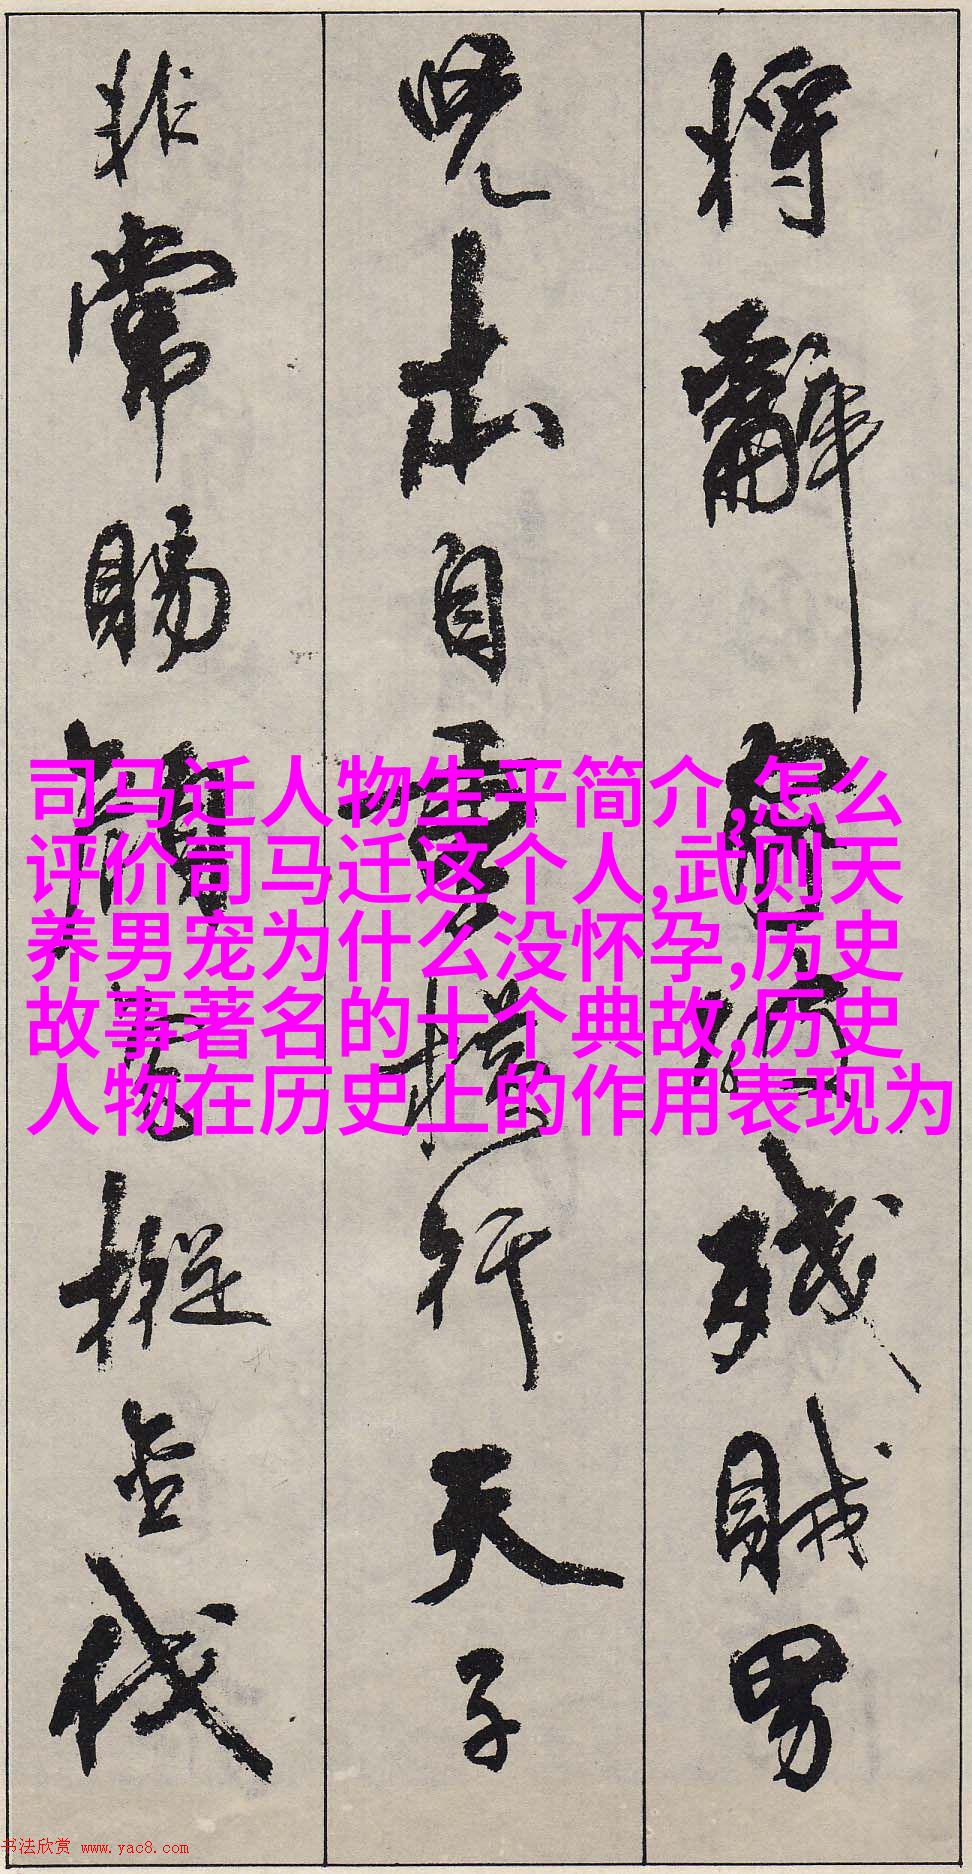 將辭家破殘賊男
兒本自重橫行天子
非常賜顏色摐金伐
司马迁人物生平简介,怎么
评价司马迁这个人,武则天
养男宠为什么没怀孕,历史
故事著名的十个典故,历史
人物在历史上的作用表现为
书法欣赏 www.yac8.com